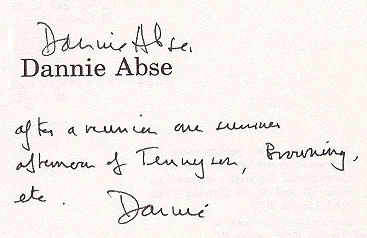 Dannie Abse.
Dannie Abse
after a reunion one summer
afternoon of Tennyson, Browning,
etc.
Dannie